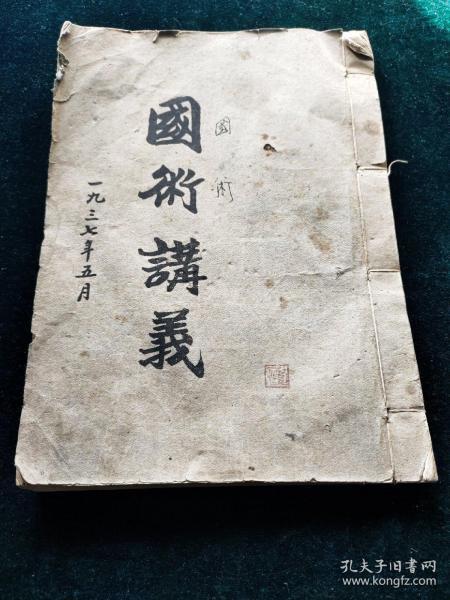 國術
國術講義
一九三七年五月
孔夫子旧书网
www.kongfz.com